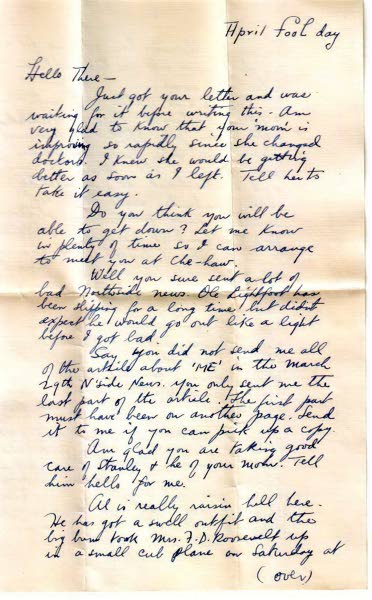 April Fool day
Hello There—
Just got your letter and was
waiting for it before writing this. Am
very glad to know that your mom is
improving so rapidly since she changed
doctors. I knew she would be getting
better as soon as I left. Tell her to
take it easy.
Do you think you will be
able to get down? Let me know
in plenty of time so I can arrange
to meet you at Che-haw.
Well you sure sent a lot of
bad Northside news. Ole Lightfoot has
been slipping for a long time but didn't
expect he would go out like a light
before I got bad.
Say you did not send me all
of the article about 'ME' in the March
29th N'side News. You only sent me the
last part of the article. The first part
must have been on another page. Send
it to me if you can pick up a copy.
Am glad you are taking good
care of Stanley & he of your mom. Tell
him hello for me.
Al is really raisin hell here.
He has got a swell outfit and the
big bum took Mrs. F.D. Roosevelt up
in a small cub plane on Saturday at
(over)